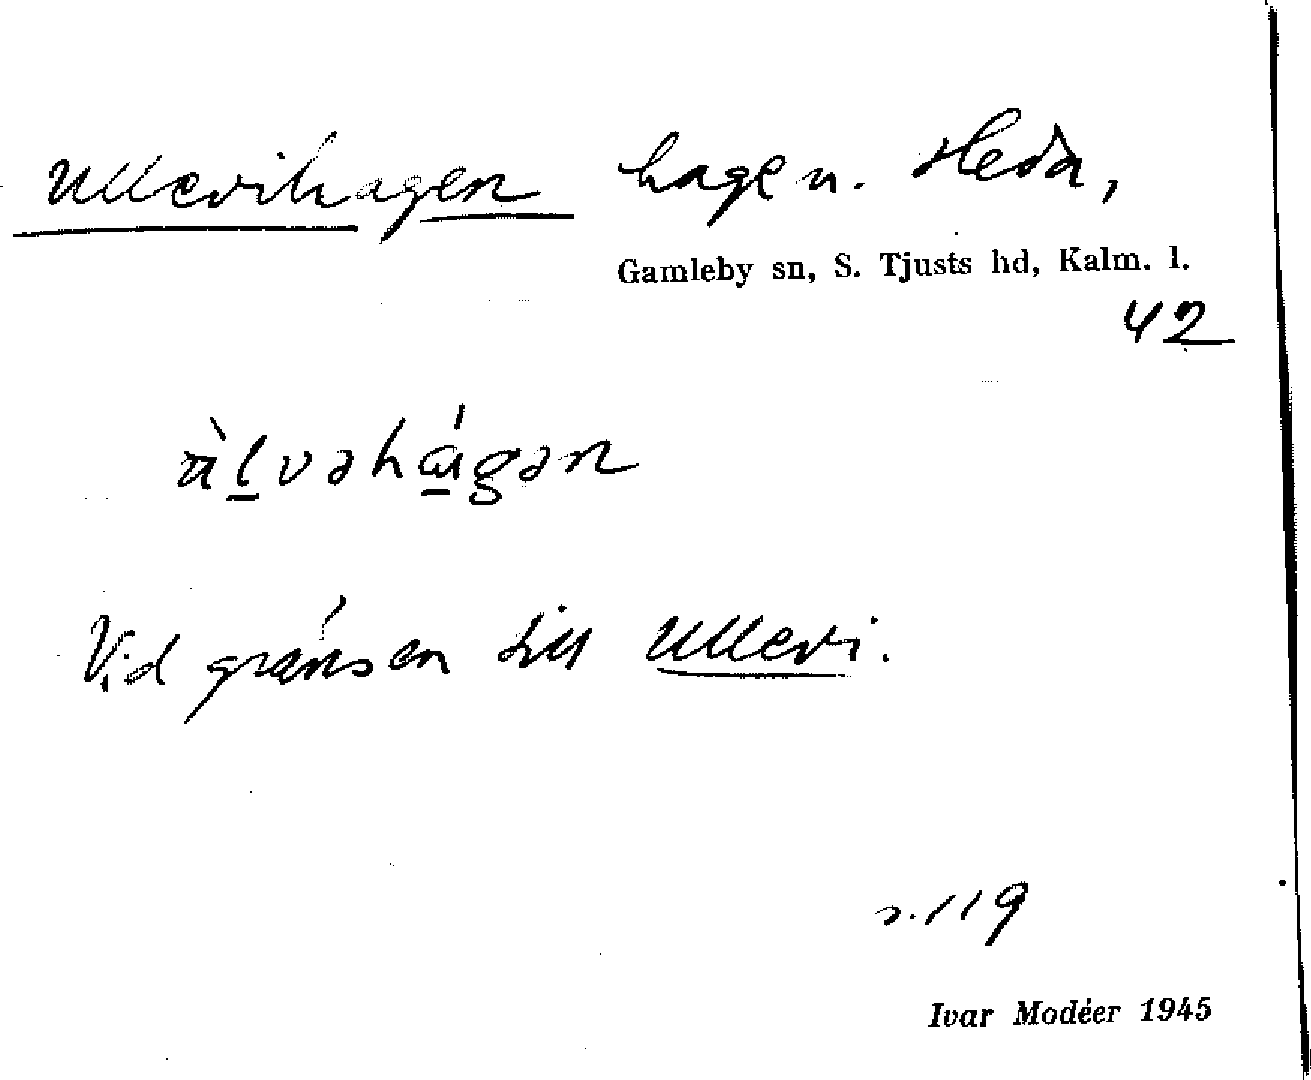 Ullevihagen hage u. Heda,
Gamleby sn, S. Tjusts hd, Kalm. l.
42
àlvəhágən
Vid gränsen till Ullevi.
s. 119
Ivar Modéer 1945